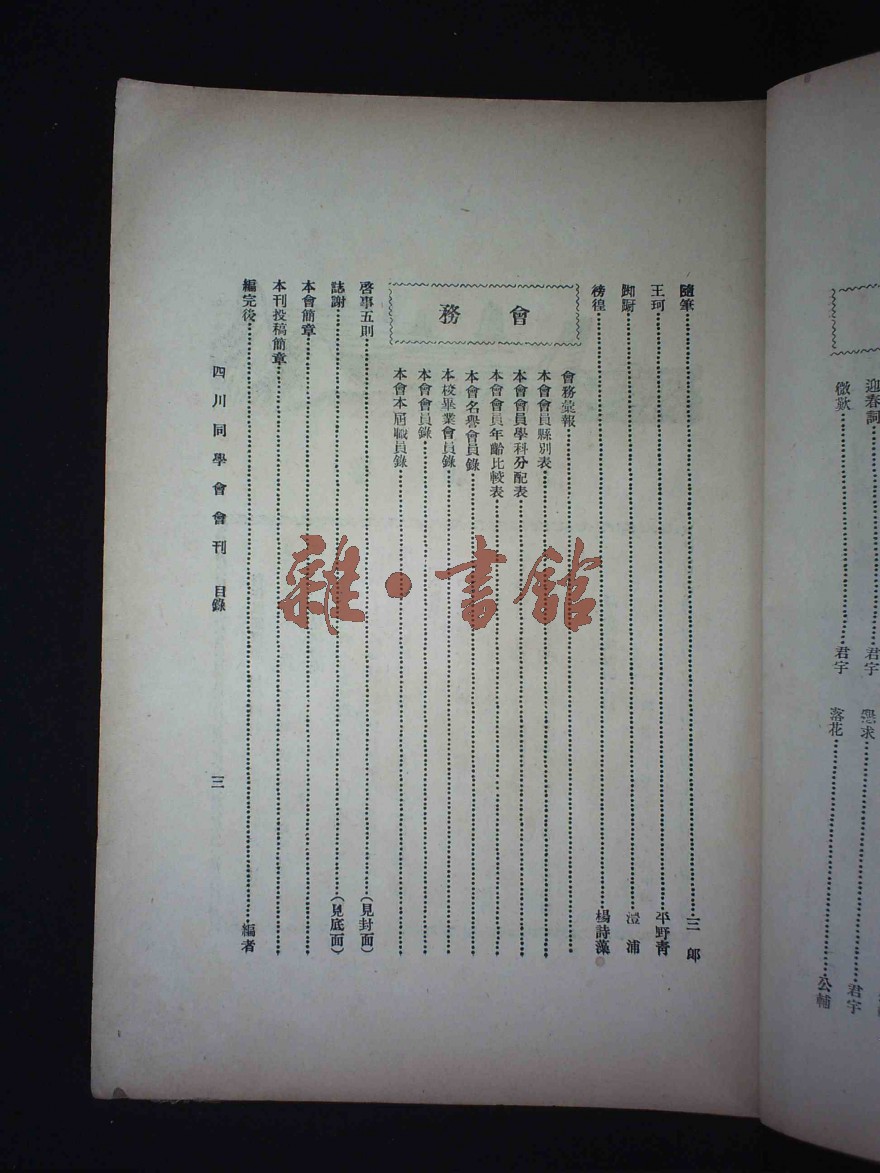 迎春詞……君宇
懇求……君宇
微歎……君宇
落花……公輔
隨筆……三郎
王珂……平野青
卸厨……澧浦
榜徨……楊詩藻
會務
會務彙報……
本會會員縣別表……
本會會員學科分配表……
本會會員年齡比較表……
本會名譽會員錄……
本校畢業會員錄……
本會會員錄……
本會本屆職員錄……
啓事五則……(見封面)
誌謝……(見底面)
本會簡章……
本刊投稿簡章……
編完後……編者
四川同學會會刊 目錄 三
雜·書館